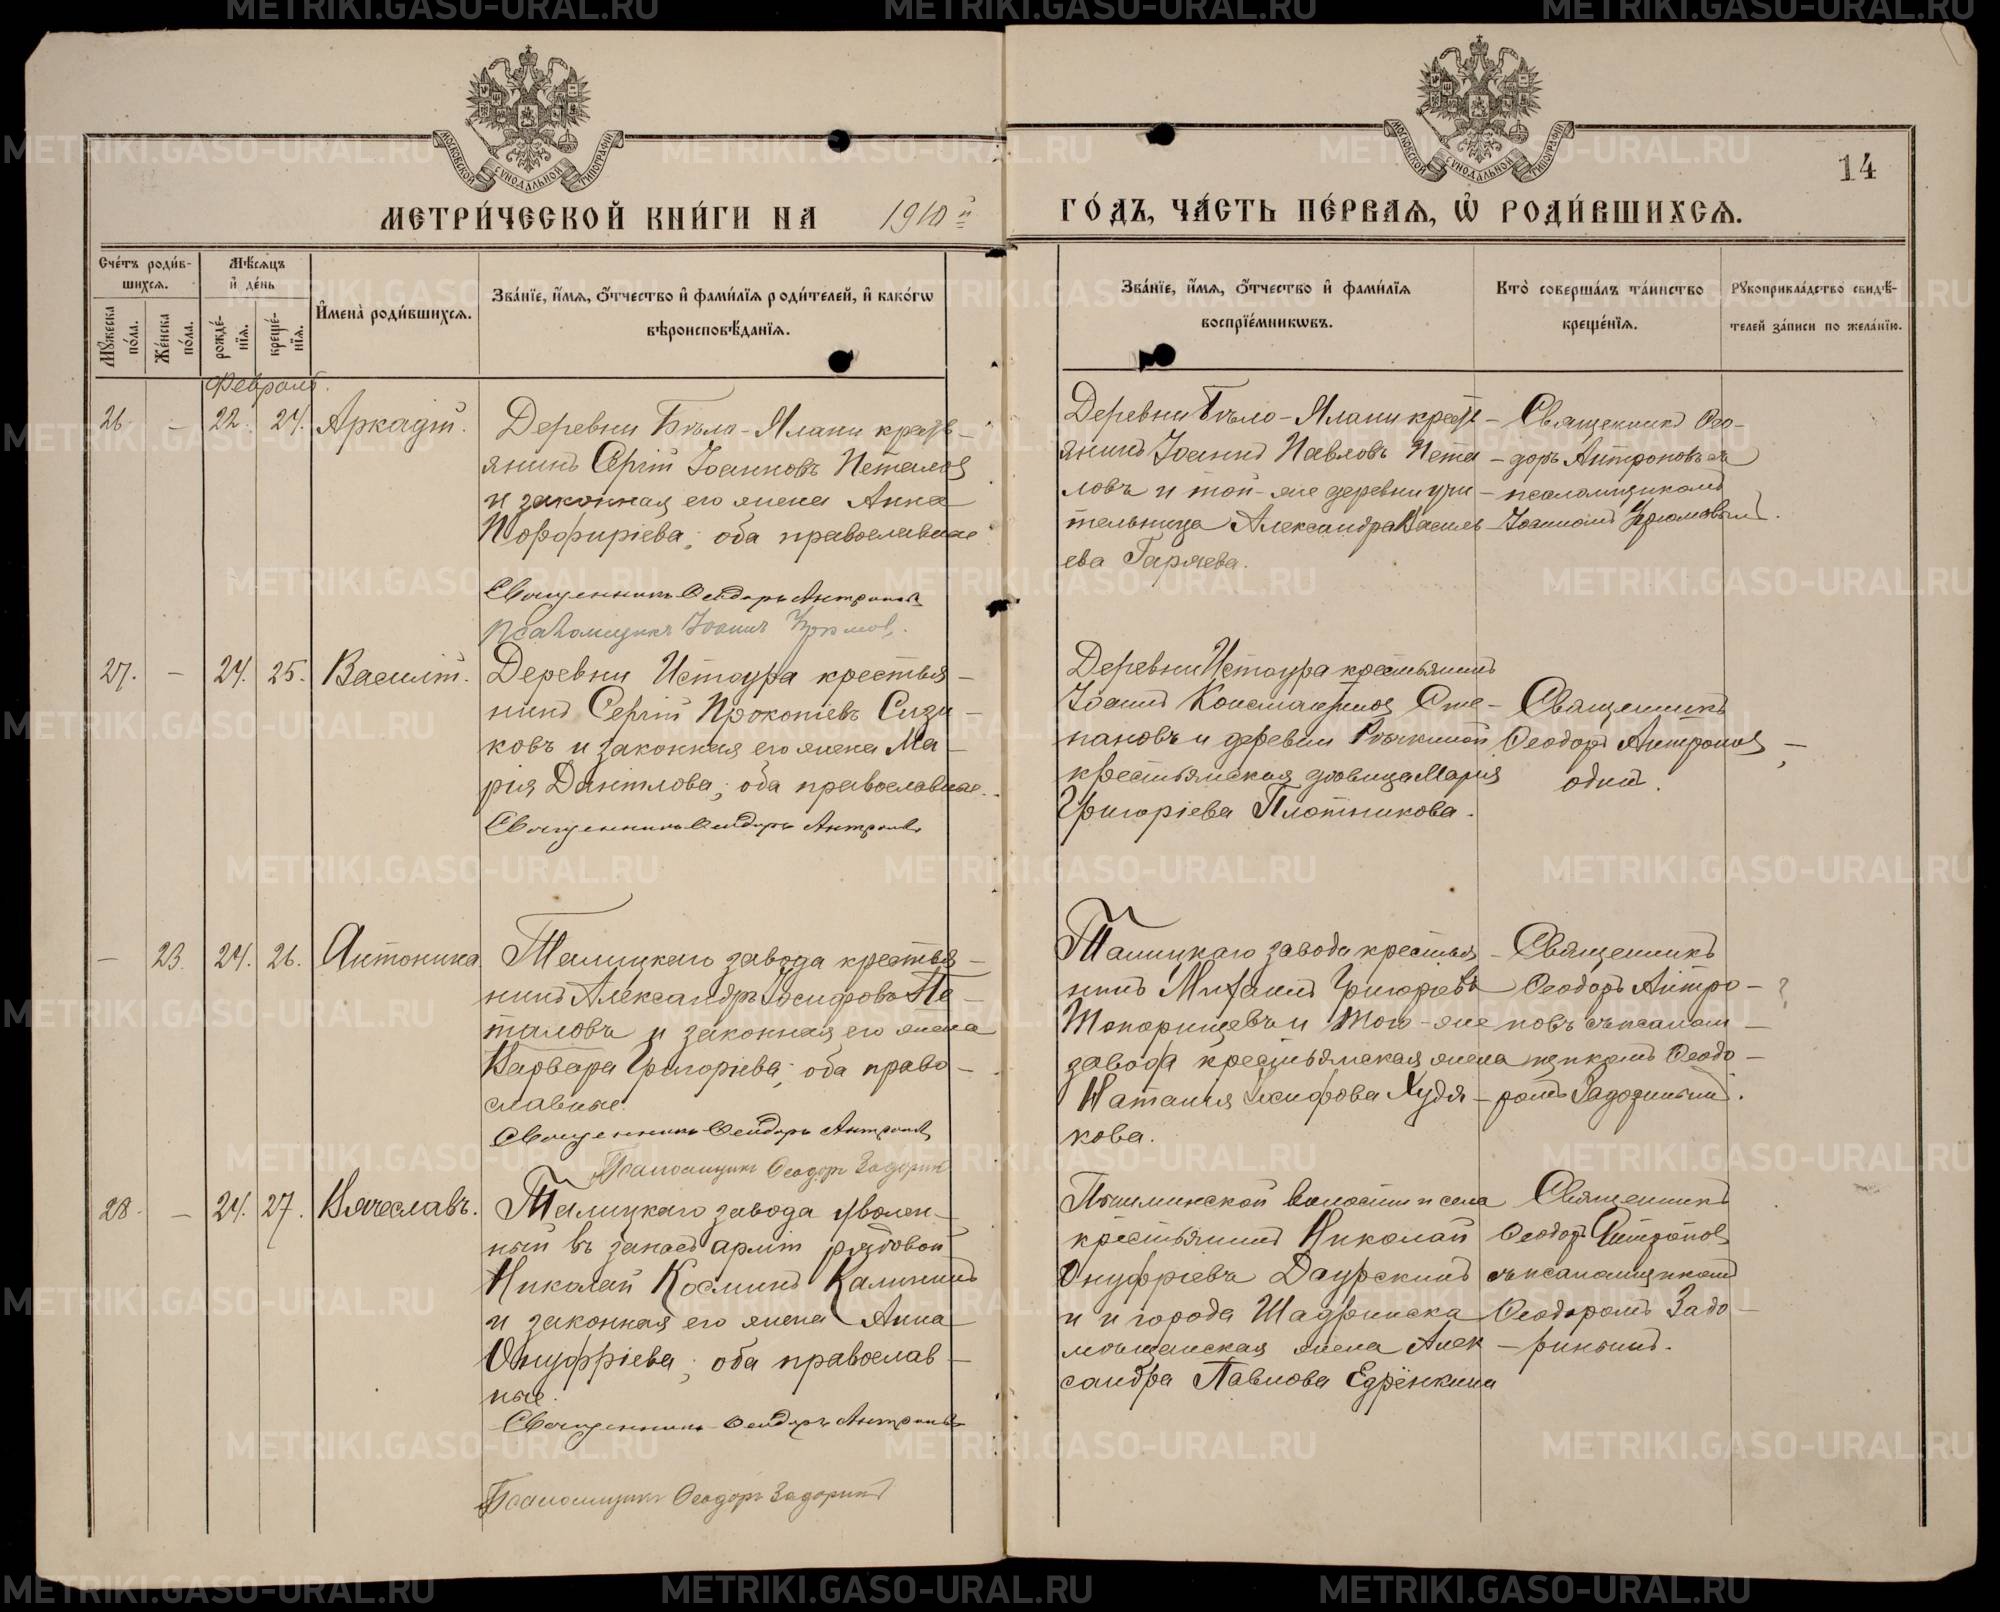 МЕТРИ́ЧЕСКОЙ КНИ́ГИ НА 1910й ГО́ДЪ, ЧА́СТЬ ПЕ́РВАѦ, Ѡ҆ РОДИ́ВШИХСѦ.
14
МОСКОВСКОЙ СѴНОДАЛЬНОЙ ТИПОГРАФІИ
МОСКОВСКОЙ СѴНОДАЛЬНОЙ ТИПОГРАФІИ
Сче́тъ роди́вшихсѧ.
Мꙋ́жеска по́ла.
Же́нска по́ла.
Мѣ́сѧцъ и҆ де́нь
рожде́нїѧ.
креще́нїѧ.
И҆мена̀ роди́вшихсѧ.
Зва́нїе, и҆́мѧ, ѻ҆́тчество и҆ фами́лїѧ роди́телей, и҆ како́гѡ
вѣроисповѣ́данїѧ.
Зва́нїе, и҆́мѧ, ѻ҆́тчество и҆ фами́лїѧ
воспрїе́мникѡвъ.
Кто̀ соверша́лъ та́инство
креще́нїѧ.
Рꙋкоприкла́дство свидѣ́-
телей за́писи по жела́нїю.
Февраль.
26 - 22. 24. Аркадій.
Деревни Бѣло-Ялани кресть-
янинъ Сергій Іоанновъ Петаловъ
и законная его жена Анна
Порфиріева; оба православные
Священникъ Ѳеодоръ Антроповъ
Псаломщикъ Іоаннъ Угрюмовъ.
Деревни Бѣло-Ялани кресть-
янинъ Іоаннъ Павловъ Пета-
ловъ и той-же деревни учи-
тельница Александра Василь-
ева Гаряева.
Священникъ Ѳео-
доръ Антроповъ съ
псаломщикомъ
Іоанномъ Угрюмовымъ.
27. - 24. 25. Василій.
Деревни Истоура крестья-
нинъ Сергій Прокопіевъ Сизи-
ковъ и законная его жена Ма-
рія Даніилова; оба православные.
Священникъ Ѳеодоръ Антроповъ
Деревни Истоура крестьянинъ
Іоаннъ Константиновъ Сте-
пановъ и деревни Рѣчкиной
крестьянская вдовица Марія
Григоріева Плотникова.
Священникъ
Ѳеодоръ Антроповъ
одинъ.
- 23. 24. 26. Антонина.
Талицкаго завода крестья-
нинъ Александръ Іосифовъ Пе-
таловъ и законная его жена
Варвара Григоріева; оба право-
славные.
Священникъ Ѳеодоръ Антроповъ
Псаломщикъ Ѳеодоръ Задоринъ
Талицкаго завода крестья-
нинъ Михаилъ Григоріевъ
Топорищевъ и того-же
завода крестьянская жена
Наталія Іосифова Худя-
кова.
Священникъ
Ѳеодоръ Антро-
повъ съ псалом-
щикомъ Ѳеодо-
ромъ Задоринымъ.
28. - 24. 27. Вячеславъ.
Талицкаго завода уволен-
ный въ запасъ арміи рядовой
Николай Косминъ Калининъ
и законная его жена Анна
Онуфріева; оба православ-
ные.
Священникъ Ѳеодоръ Антроповъ
Псаломщикъ Ѳеодоръ Задоринъ
Пышминской волости и села
крестьянинъ Николай
Онуфріевъ Даурскихъ
и города Шадринска
мѣщанская жена Алек-
сандра Павлова Едрёнкина
Священникъ
Ѳеодоръ Антроповъ
съ псаломщикомъ
Ѳеодоромъ Задо-
ринымъ.
METRIKI.GASO-URAL.RU